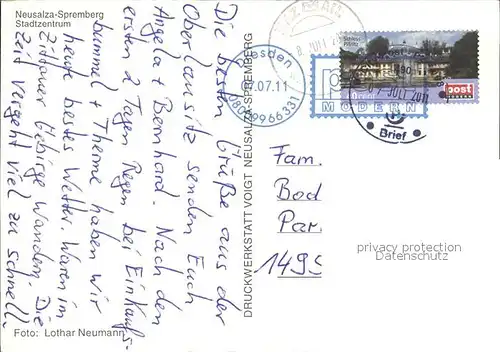 Neusalza-Spremberg
Stadtzentrum
Die besten Grüße aus der
Oberlausitz senden Euch
Angela + Bernhard. Nach den
ersten 2 Tagen Regen bei Einkaufs-
bummel + Therme haben wir
heute bestes Wetter. Waren im
Zittauer Gebirge Wandern. Die
Zeit vergeht viel zu schnell.
Foto: Lothar Neumann
DRUCKWERKSTATT VOIGT NEUSALZA-SPREMBERG
Dresden
07.07.11
MODERN
post
Brief
Fam.
Bod
Par.
1495
privacy protection
Datenschutz